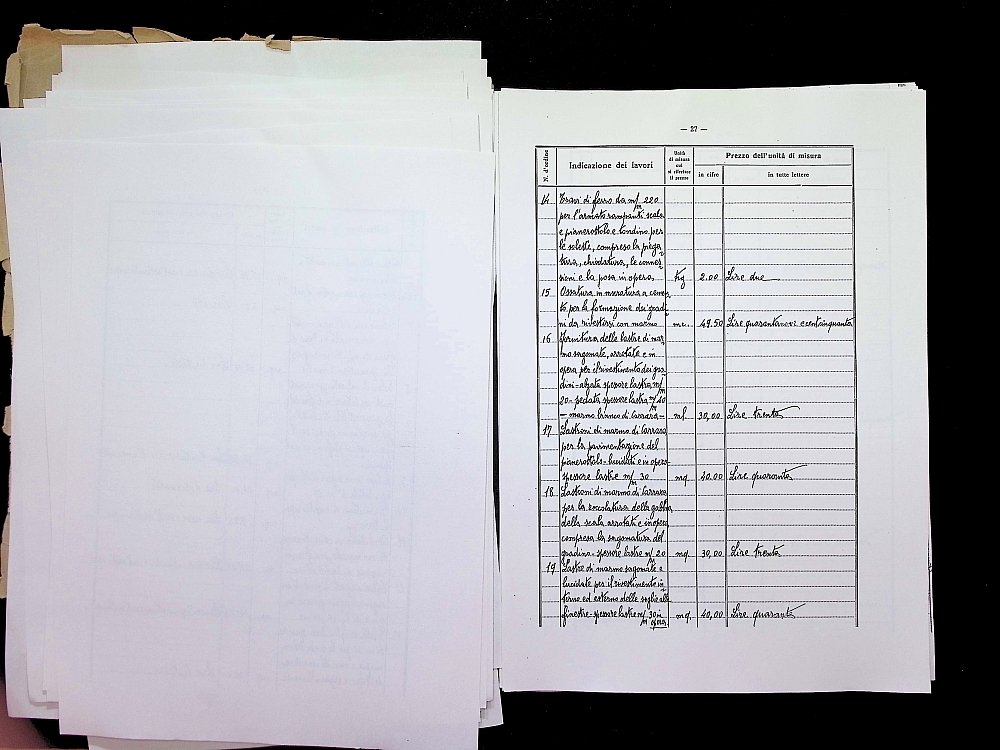 — 27 —
N. d'ordine
Indicazione dei lavori
Unità
di misura
cui
si riferisce
il prezzo
Prezzo dell'unità di misura
in cifre
in tutte lettere
14 Travi di ferro da m/m 220
per l'armato rampanti scala
e pianerottolo e tondino per
le solette, compreso la piega
tura, chiodatura, le connes
sioni e la posa in opera Kg 2.00 Lire due
15 Ossatura in muratura a cemen
to per la formazione dei gradi
ni da rivestirsi con marmo mc. 49.50 Lire quarantanove e cent. cinquanta
16 Fornitura delle lastre di mar
mo sagomate, arrotate e in
opera per il rivestimento dei gra
dini - alzata spessore lastra m/m
20 - pedata spessore lastra m/m 40
— marmo bianco di Carrara — ml 30,00 Lire trenta
17 Lastroni di marmo di Carrara
per la pavimentazione del
pianerottolo - lucidati e in opera -
spessore lastre m/m 30 mq 40.00 Lire quaranta
18 Lastroni di marmo di Carrara
per la zoccolatura della gabbia
della scala arrotati e in opera
compresa la sagomatura del
gradino - spessore lastre m/m 20 mq 30,00 Lire trenta
19 Lastre di marmo sagomate e
lucidate per il rivestimento in
terno ed esterno delle soglie alle
finestre - spessore lastre m/m 30 in
opera mq. 40,00 Lire quaranta